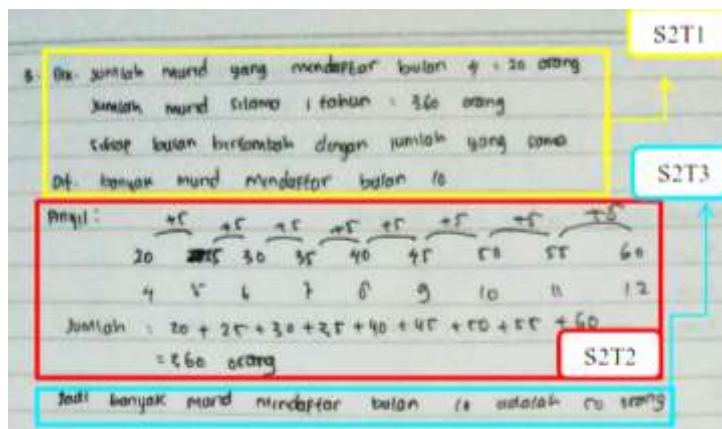 S2T1
3. Dik. Jumlah murid yang mendaftar bulan 4 = 20 orang
Jumlah murid silama 1 tahun = 360 orang
Sitiap bulan bertambah dengan jumlah yang sama
Dit. banyak murid mendaftar bulan 10
S2T3
+5 +5 +5 +5 +5 +5 +5 +5
20 25 30 35 40 45 50 55 60
4 5 6 7 8 9 10 11 12
Jumlah : 20 + 25 + 30 + 35 + 40 + 45 + 50 + 55 + 60
= 360 orang
S2T2
Jadi banyak murid mendaftar bulan 10 adalah 50 orang